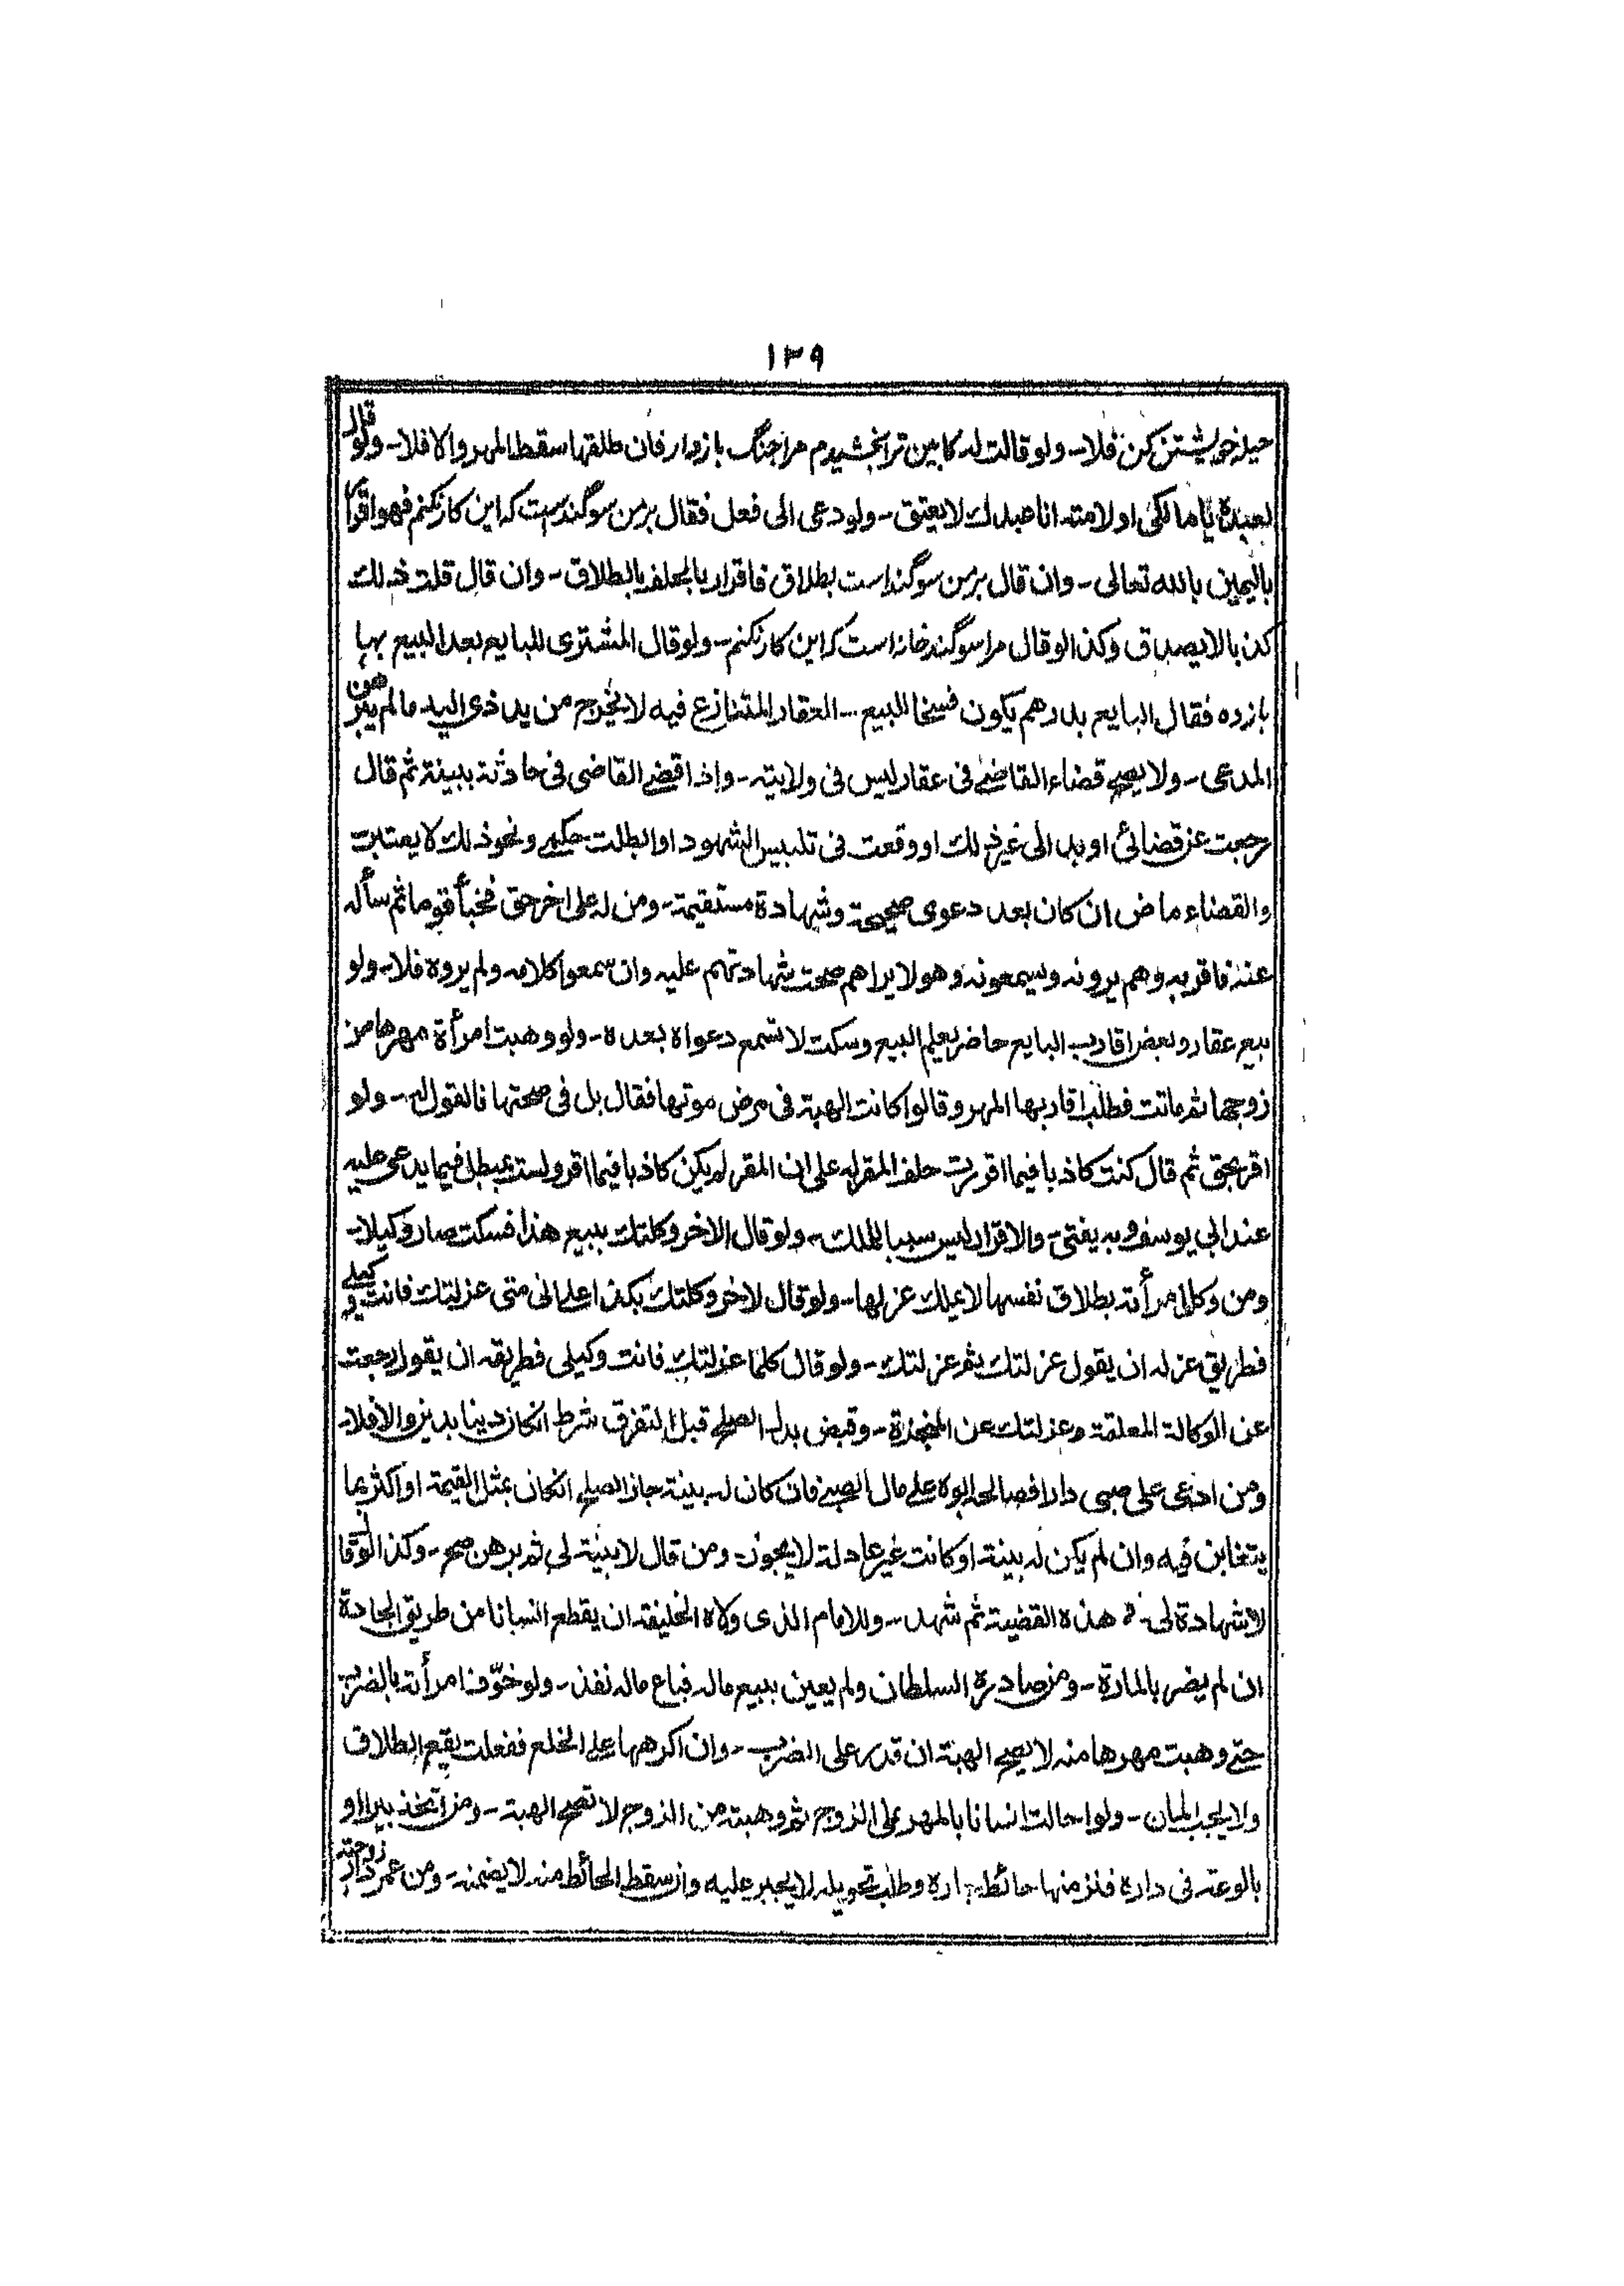 ١٣٩
حيلۂ خويشتن كن فلا۔ ولو قالت له كابين ترا بخشيدم مرا جنگ باز دار فان طلقها سقط المهر والا فلا۔ ولو قال
لعبده يا مالكى او لامته انا عبدك لا يعتق۔ ولو دعى الى فعل فقال بر من سوگند ست كه اين كار نكنم فهو اقرار
باليمين بالله تعالى۔ وان قال بر من سوگند است بطلاق فاقرار بالحلف بالطلاق۔ وان قال قلت ذلك
كذبا لا يصدق وكذا لو قال مرا سوگند خانه است كه اين كار نكنم۔ ولو قال المشترى للبايع بعد البيع بها
باز ده فقال البايع بدهم يكون فسخا للبيع۔ العقار المتنازع فيه لا يخرج من يد ذى اليد مالم يبرهن
المدعى۔ ولا يصح قضاء القاضى فى عقار ليس فى ولايته۔ واذا قضى القاضى فى حادثة ببينة ثم قال
رجعت عن قضائى او بدا لى غير ذلك او وقعت فى تلبيس الشهود او ابطلت حكمى ونحو ذلك لا يعتبر
والقضاء ماض ان كان بعد دعوى صحيحة وشهادة مستقيمة۔ ومن له على اخر حق فخبأ قوما ثم سأله
عنه فاقر به وهم يرونه ويسمعونه وهو لا يراهم صحت شهادتهم عليه وان سمعوا كلامه ولم يروه فلا۔ ولو
بيع عقار وبعض اقارب البايع حاضر يعلم البيع وسكت لا تسمع دعواه بعده۔ ولو وهبت امرأة مهرها من
زوجها ثم ماتت فطلب اقاربها المهر وقالوا كانت الهبة فى مرض موتها فقال بل فى صحتها فالقول له۔ ولو
اقر بحق ثم قال كنت كاذبا فيما اقررت حلف المقر له على ان المقر لم يكن كاذبا فيما اقر ولست بمبطل فيما يدعى عليه
عند ابى يوسف وبه يفتى۔ والاقرار ليس سببا للملك۔ ولو قال الاخر وكلتك ببيع هذا فسكت صار وكيلا۔
ومن وكل امرأته بطلاق نفسها لا يملك عزلها۔ ولو قال لاخر وكلتك بكذا على انى متى عزلتك فانت وكيلى
فطريق عزله ان يقول عزلتك ثم عزلتك۔ ولو قال كلما عزلتك فانت وكيلى فطريقه ان يقول رجعت
عن الوكالة المعلقة وعزلتك عن المنجزة۔ وقبض بدل الصلح قبل التفرق شرط ان كان دينا بدين والا فلا۔
ومن ادعى على صبى دارا فصالحه ابوه على مال الصبى فان كان له بينة جاز الصلح ان كان بمثل القيمة او اكثر بما
يتغابن فيه وان لم يكن له بينة او كانت غير عادلة لا يجوز۔ ومن قال لا بينة لى ثم برهن صح۔ وكذا لو قال
لا شهادة لى فى هذه القضية ثم شهد۔ وللامام الذى ولاه الخليفة ان يقطع انسانا من طريق الجادة
ان لم يضر بالمارة۔ ومن صادره السلطان ولم يعين ببيع ماله فباع ماله نفذ۔ ولو خوّف امرأته بالضرب
حتى وهبت مهرها منه لا يصح الهبة ان قدر على الضرب۔ وان اكرهها على الخلع ففعلت يقع الطلاق
ولا يجب المال۔ ولو احالت انسانا بالمهر على الزوج ثم وهبته من الزوج لا تصح الهبة۔ ومن اتخذ بيرا او
بالوعة فى داره فنز منها حائط جاره وطلب تحويله لا يجبر عليه وان سقط الحائط منه لا يضمنه۔ ومن عمر دار زوجته